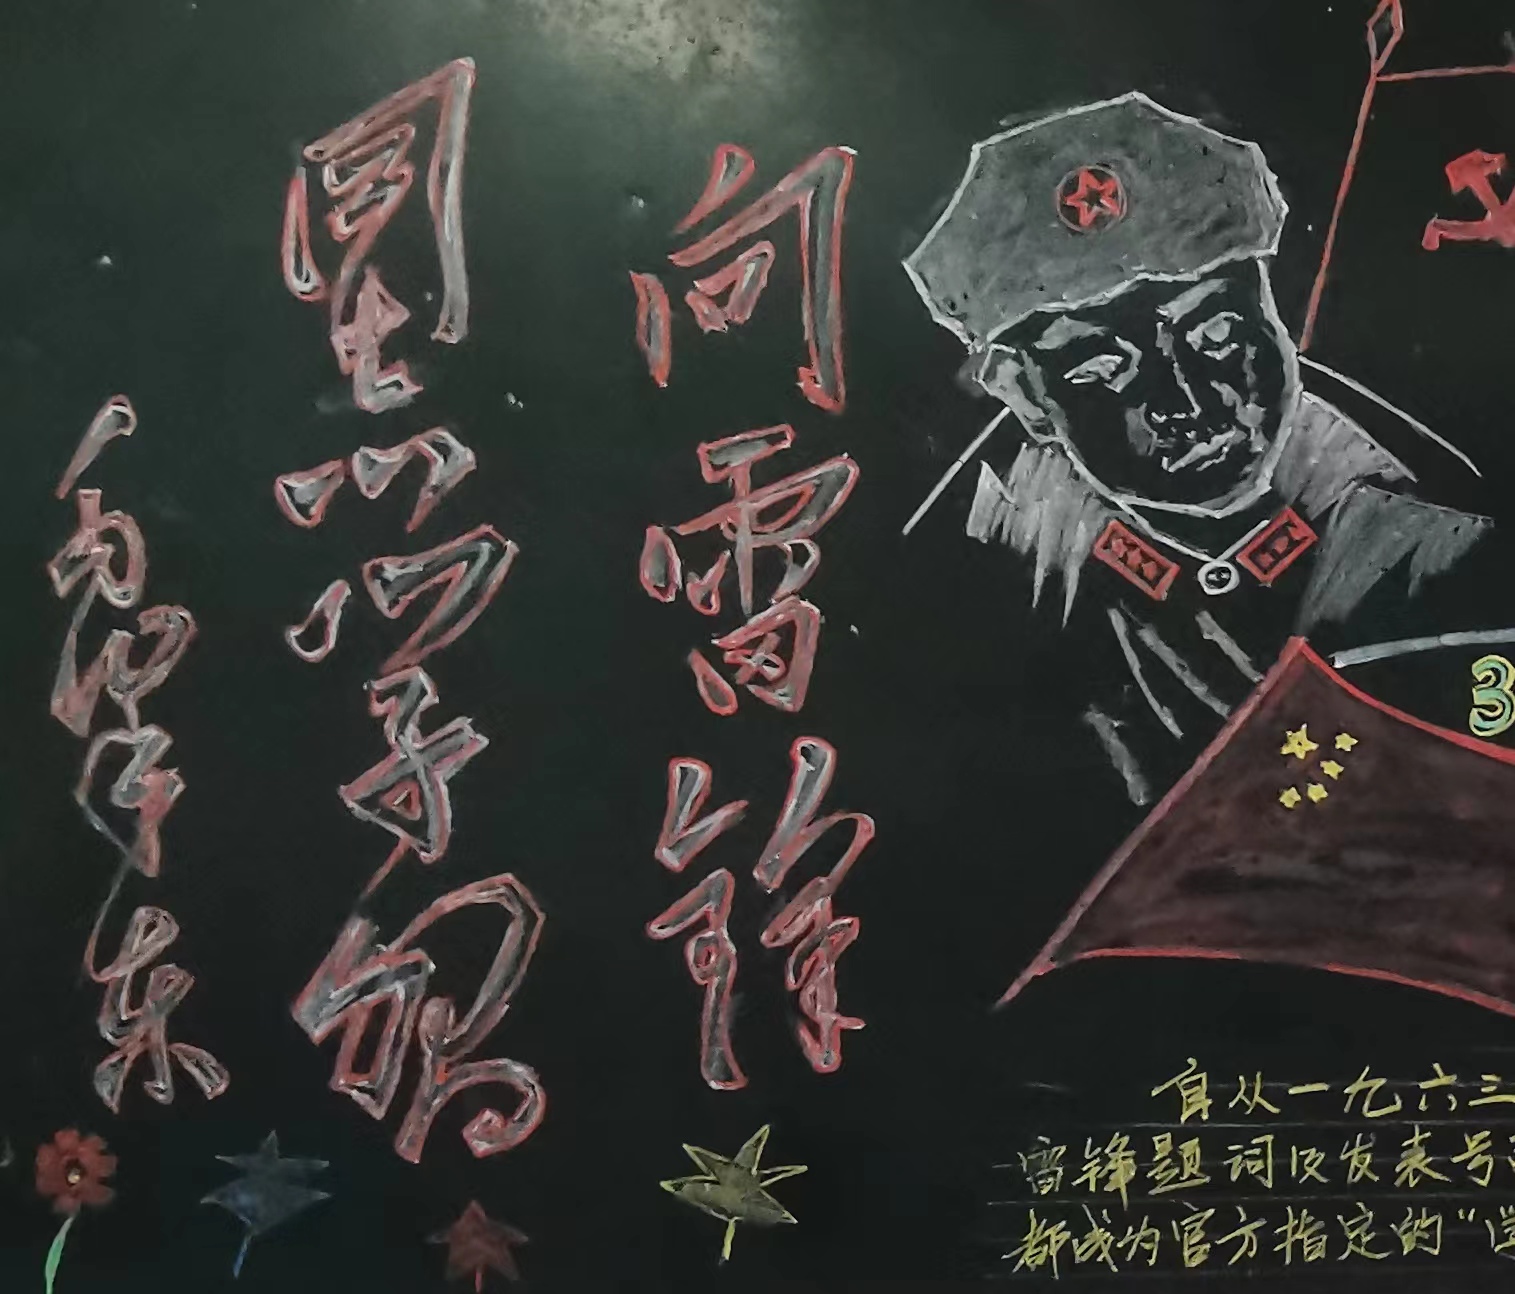 向雷锋
同志学习
毛泽东
3
自从一九六三
雷锋题词及发表号
都成为官方指定的“